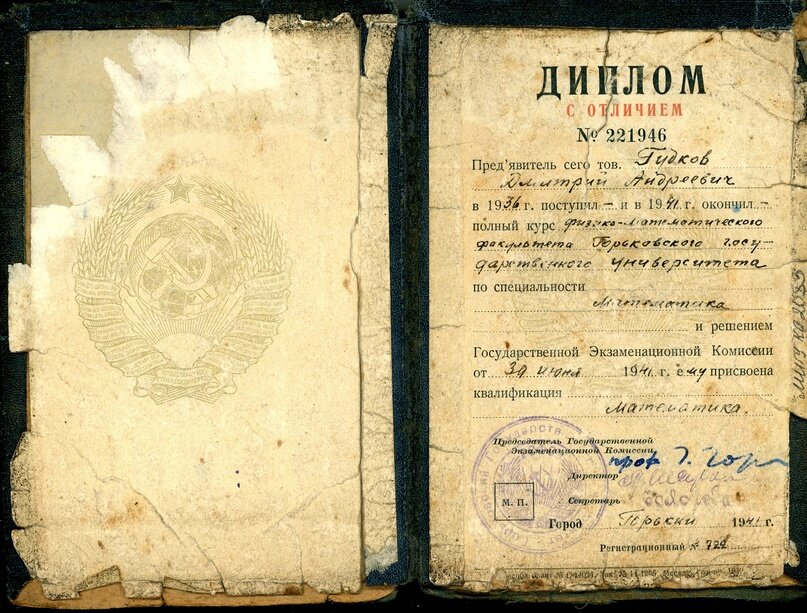 ДИПЛОМ
С ОТЛИЧИЕМ
№ 221946
Пред'явитель сего тов. Гудков
Дмитрий Андреевич
в 1936 г. поступил — и в 1941 г. окончил —
полный курс физико-математического
факультета Горьковского госу-
дарственного университета
по специальности
Математика
и решением
Государственной Экзаменационной Комиссии
от 30 июня 1941 г. ему присвоена
квалификация
математика.
Председатель Государственной
Экзаменационной Комиссии проф.
Директор
Секретарь
М. П.
Город Горький 1941 г.
Регистрационный №